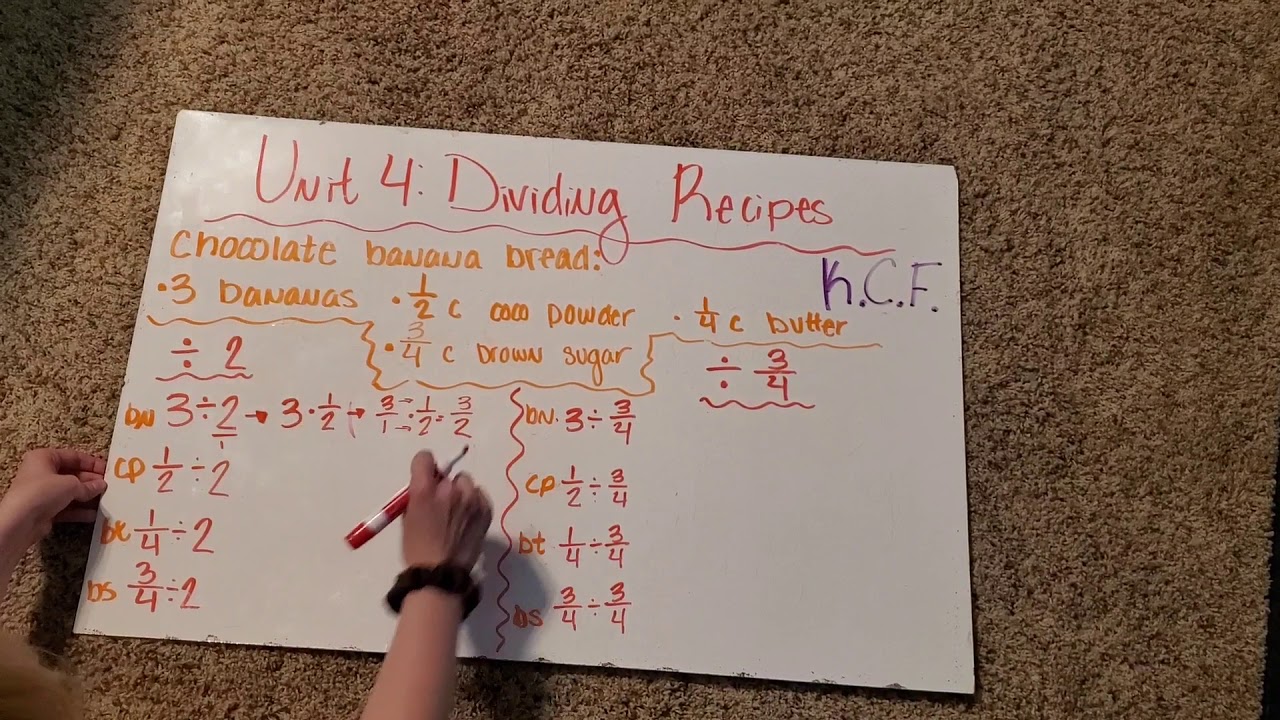 Unit 4: Dividing Recipes
Chocolate banana bread:
K.C.F.
• 3 bananas • 1/2 c coco powder • 1/4 c butter
• 3/4 c brown sugar
÷ 2
÷ 3/4
bn 3 ÷ 2/1 → 3 · 1/2 → 3/1 · 1/2 = 3/2
cp 1/2 ÷ 2
bt 1/4 ÷ 2
bs 3/4 ÷ 2
bn. 3 ÷ 3/4
cp 1/2 ÷ 3/4
bt 1/4 ÷ 3/4
bs 3/4 ÷ 3/4